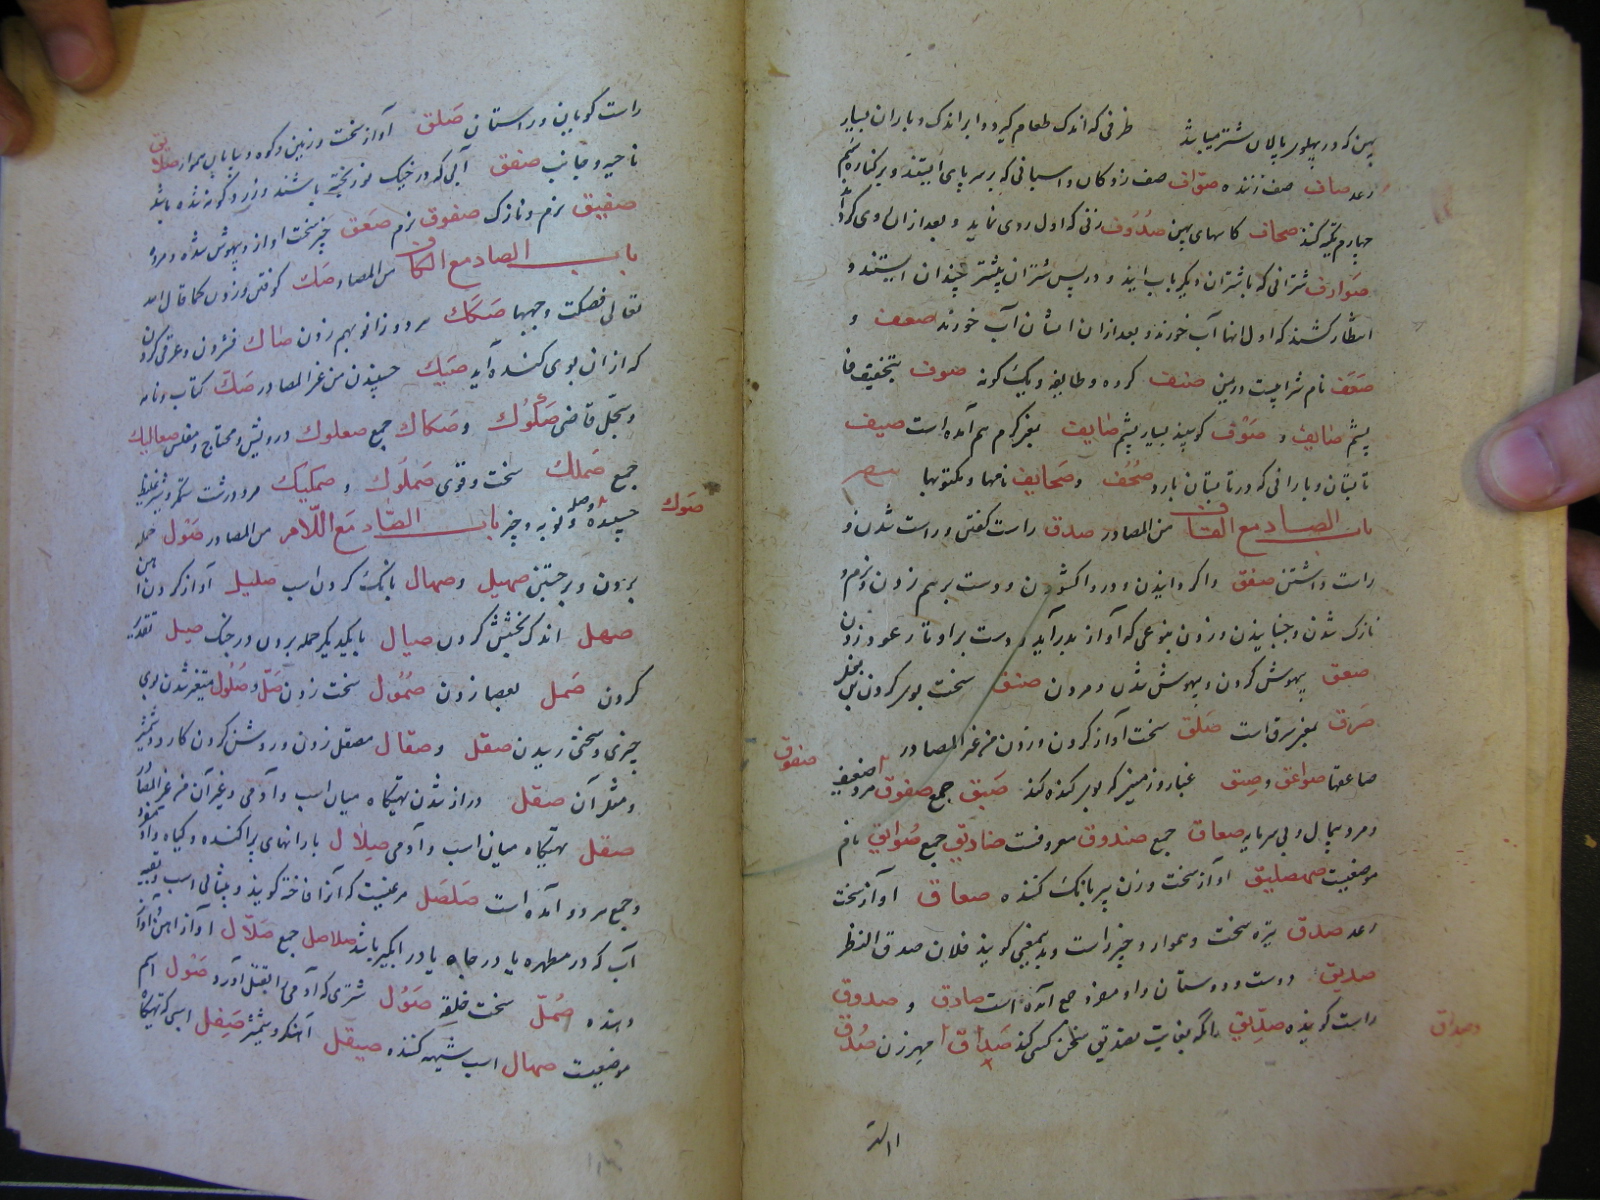 پهن که در پهلوی پالان شتر میباشد ظرفی که اندک طعام گیرد و ابر اندک و باران بسیار
رعد صاف صف زننده صوّاف صف زدکان و اسبانی که بر سه پای ایستند و بر کناره سُم
چهارم تکیه کنند صحاف کاسهای پهن صَدُوف زنی که اول روی نماید و بعد ازان
صَوَادِف شترانی که با شتران دیگر بآب ایند و در پس شتران پیشتر چندان ایستند و
انتظار کشند که اول آنها آب خورند و بعد ازان ایشان آب خورند صعف و
صَعَف نام شرابیست در یمن صنف کروه و طایفه و یک کونه صوف بتخفیف فا
پشم صَایِف و صَوْف کوسپند بسیار پشم صَایِف بمعنی کرم هم آمده است صیف
تابستان و بارانی که در تابستان بارد صُحُف و صَحَایِف نامها و مکتوبها
باب الصاد مع القاف من المصادر صدق راست کفتن و راست شدن و
راست داشتن صفق واکردانیدن و در واکشودن و دست بر هم زدن و نرم و
نازک شدن و جنبانیدن و زدن بنوعی که آواز بدر آید و دست بر اوتار عود زدن
صعق بیهوش کردن و بیهوش شدن و مردن سخت بوی کردن بغل
صَرَق بمعنی سرقست صَلَق سخت آواز کردن و زدن من غیر المصادر
صفوق
صاعقها صواعق و صِیق غبار و زمینی که بوی کنده کند جمع صفوق
و مرد بیمال و بی سرمایه صعاق جمع صندوق معروفست صنادیق جمع صُوایق نام
موضعیست صهصلیق آواز سخت و زن پیر بانک کننده صعاق آواز سخت
رعد صدق نیزه سخت و هموار و چیز راست و بدین معنی کویند فلان صدق النظر
صدیق دوست و دوستان و او مفرد و جمع آمده است صادق و صدوق
راست کوینده صدّیق آنکه بغایت تصدیق سخن کسی کند صَدَاق مهر زن صُدُق
وصداق
راست کویان و راستان صَلق آواز سخت و زمین و کوه و بیابان هموار صلایق
ناحیه و جانب صفق آبی که در خیک نو ریخته باشند و زرد کونه شده باشد
صفیق نرم و نازک صفوق نرم صَعَق خر سخت اواز و بیهوش شده و مرده
باب الصاد مع الکاف من المصادر صَك کوفتن و زدن کما قال الله
تعالی فصکت وجهها صَکَك هر دو زانو بهم زدن صاك فشردن و عرق کردن
که از ان بوی کنده آید صَیِك چسپیدن من غیر المصادر صَكّ کتاب و نامه
و سجلّ قاضی صُکُوك و صَکاك جمع صعلوك درویش و محتاج و مفلس صعالیك
جمع صَملك سخت و قوی صَملُوك و صمکیك مرد درشت ستبر و شیر غلیظ
صَوك
چسپیده و حمله و نوبه و چیز باب الصّاد مَع اللّام من المصادر صَوْل حمله
بردن و برجستن صهیل و صهال بانک کردن اسب صلیل آواز کردن آهن
صهل اندک بخشش کردن صیال با یکدیگر حمله بردن در جنک
کردن صَمل بعصا زدن صُمُول سخت زدن صَلّ و صُلُول متغیر شدن بوی
چیزی و سختی رسیدن صقل و صقال مصقل زدن و روشن کردن کارد و شمشیر
و مثل آن صقل دراز شدن تهیکاه میان اسب و آدمی و غیر آن من غیر المصادر
صقل تهیکاه میان اسب و آدمی صِلَال بارانهای پراکنده و کیاه
و جمع هر دو آمده است صَلصَل مرغیست که آنرا فاخته کویند و پیشانی اسب و بقیه
آب که در مطهره یا در چاه یا در ابکیر باشد صلاصل جمع صَلّال آواز آهن
دهنده صُملّ سخت خلقه صَؤُل شتری که آدمی را بقتل آورد صَوْل اسم
موضعیست صهال اسب شیهه کننده صیقل آهنکر و شمشیر صَقِل اسبی که تهیکاه